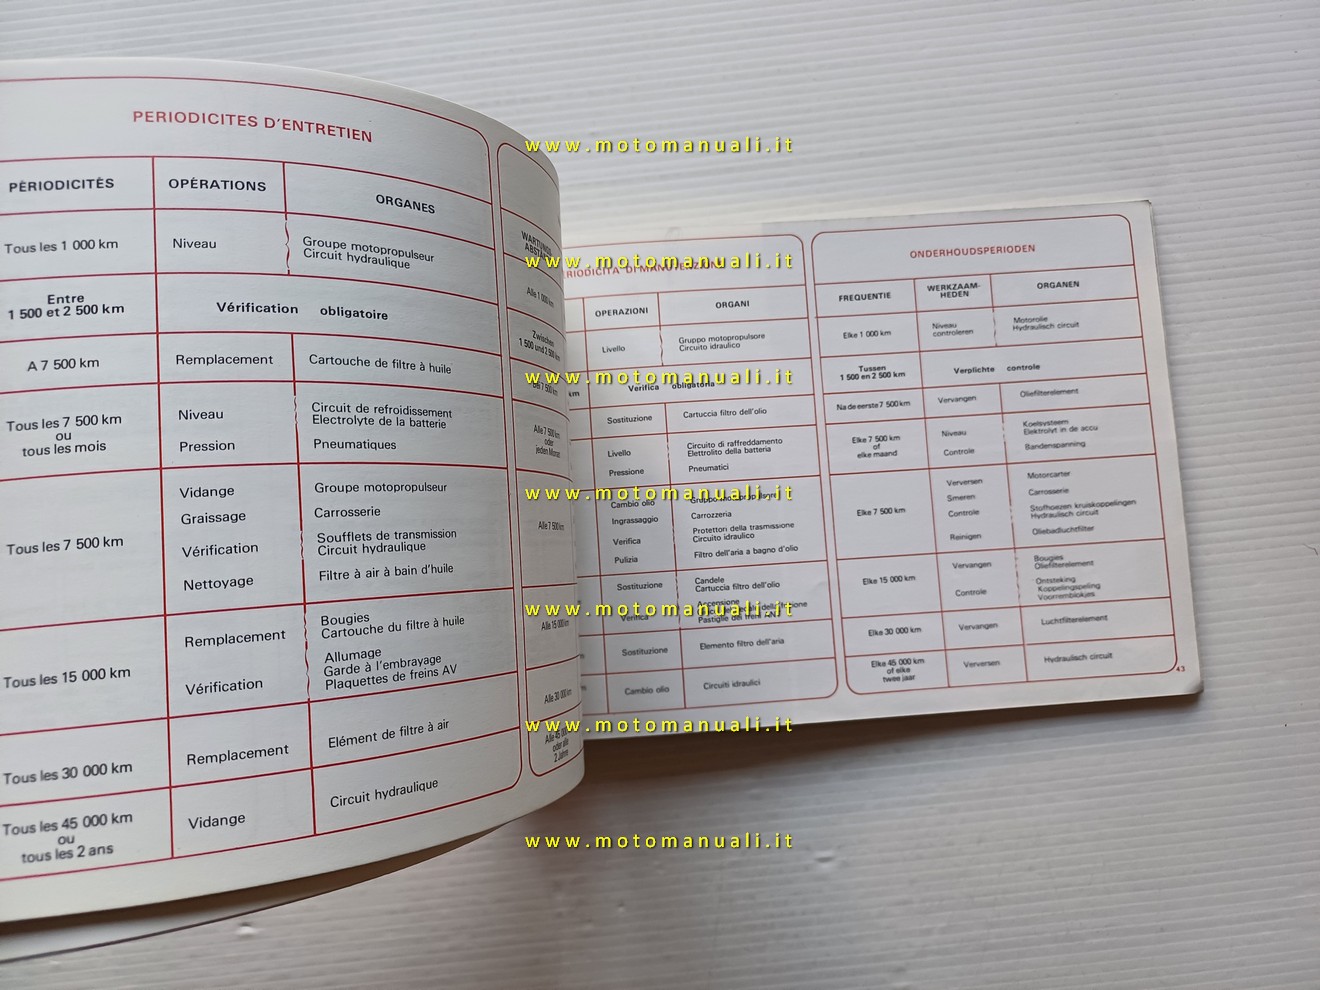 PERIODICITES D'ENTRETIEN
PÉRIODICITÉS
OPÉRATIONS
ORGANES
Tous les 1 000 km
Niveau
Groupe motopropulseur
Circuit hydraulique
Entre
1 500 et 2 500 km
Vérification obligatoire
A 7 500 km
Remplacement
Cartouche de filtre à huile
Tous les 7 500 km
ou
tous les mois
Niveau
Circuit de refroidissement
Electrolyte de la batterie
Pression
Pneumatiques
Tous les 7 500 km
Vidange
Groupe motopropulseur
Graissage
Carrosserie
Vérification
Soufflets de transmission
Circuit hydraulique
Nettoyage
Filtre à air à bain d'huile
Tous les 15 000 km
Remplacement
Bougies
Cartouche du filtre à huile
Vérification
Allumage
Garde à l'embrayage
Plaquettes de freins AV
Tous les 30 000 km
Remplacement
Elément de filtre à air
Tous les 45 000 km
ou
tous les 2 ans
Vidange
Circuit hydraulique
Alle 1 000 km
Zwischen
1 500 und 2 500 km
Alle 7 500 km
oder
jeden Monat
Alle 7 500 km
Alle 15 000 km
Alle 30 000 km
oder alle
2 Jahre
DI MANUTENZIONE
OPERAZIONI
ORGANI
Livello
Gruppo motopropulsore
Circuito idraulico
km
Verifica obbligatoria
Sostituzione
Cartuccia filtro dell'olio
Livello
Circuito di raffreddamento
Elettrolito della batteria
Pressione
Pneumatici
Cambio olio
Gruppo motopropulsore
Ingrassaggio
Carrozzeria
Verifica
Protettori della trasmissione
Circuito idraulico
Pulizia
Filtro dell'aria a bagno d'olio
Sostituzione
Candele
Cartuccia filtro dell'olio
Verifica
Accensione
Pastiglie dei freni AN
Sostituzione
Elemento filtro dell'aria
Cambio olio
Circuiti idraulici
ONDERHOUDSPERIODEN
FREQUENTIE
WERKZAAM-
HEDEN
ORGANEN
Elke 1 000 km
Niveau
controleren
Motorolie
Hydraulisch circuit
Tussen
1 500 en 2 500 km
Verplichte controle
Na de eerste 7 500 km
Vervangen
Oliefilterelement
Elke 7 500 km
of
elke maand
Niveau
Koelsysteem
Elektrolyt in de accu
Controle
Bandenspanning
Elke 7 500 km
Verversen
Motorcarter
Smeren
Carrosserie
Controle
Stofhoezen kruiskoppelingen
Hydraulisch circuit
Reinigen
Oliebadluchtfilter
Elke 15 000 km
Vervangen
Bougies
Oliefilterelement
Controle
Ontsteking
Koppelingspeling
Voorremblokjes
Elke 30 000 km
Vervangen
Luchtfilterelement
Elke 45 000 km
of elke
twee jaar
Verversen
Hydraulisch circuit
43
www.motomanuali.it
www.motomanuali.it
www.motomanuali.it
www.motomanuali.it
www.motomanuali.it
www.motomanuali.it
www.motomanuali.it